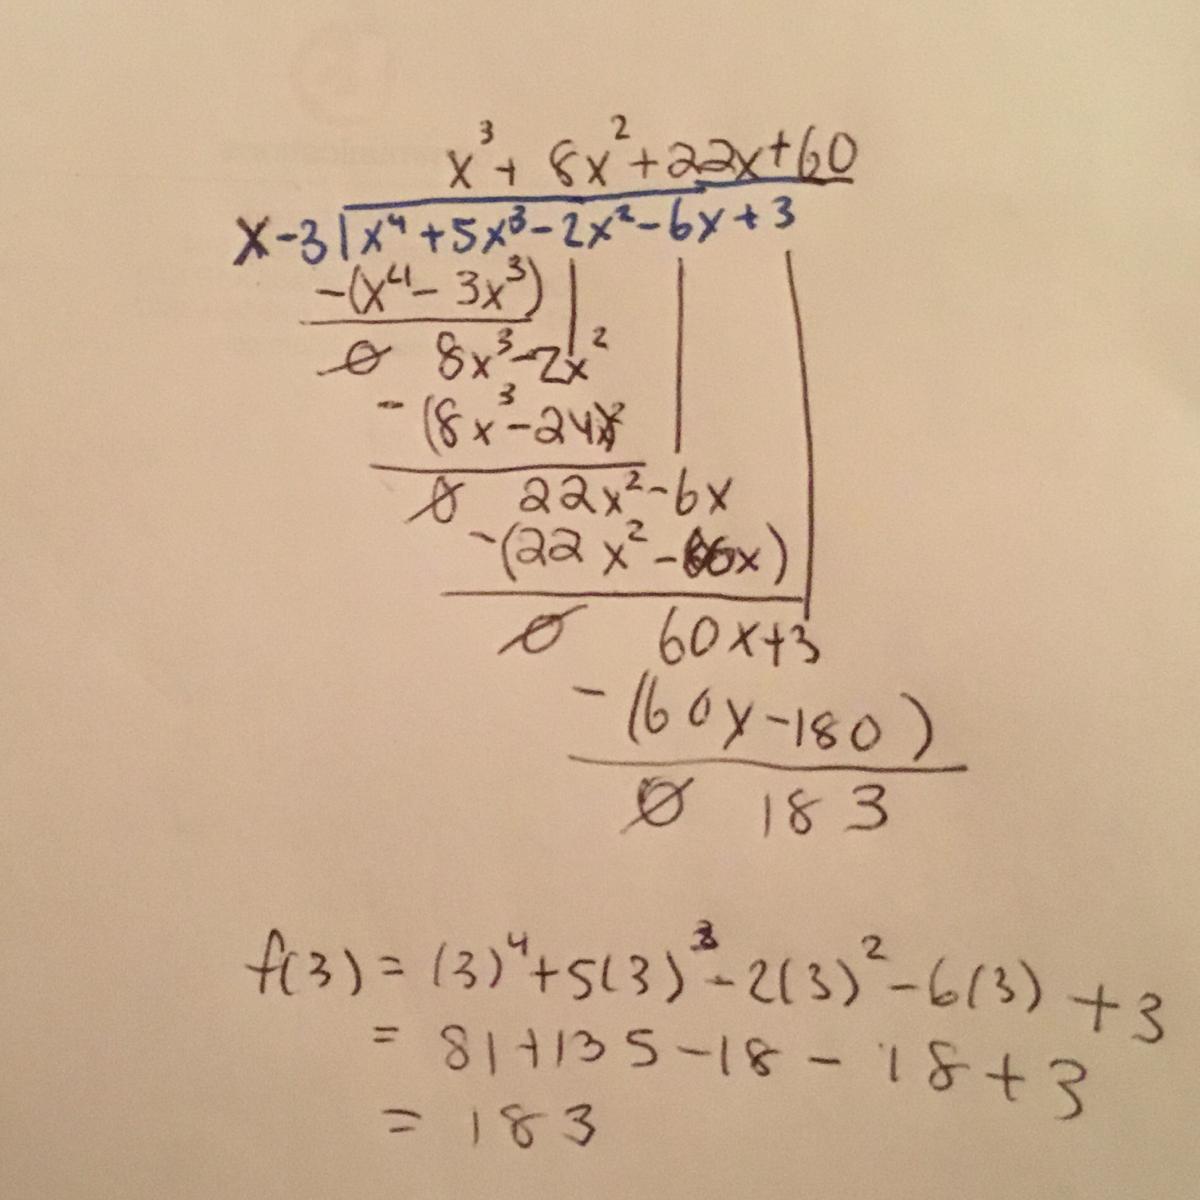 x³ + 8x² + 22x + 60
x - 3 | x⁴ + 5x³ - 2x² - 6x + 3
-(x⁴ - 3x³)
0 8x³ - 2x²
- (8x³ - 24x²
0 22x² - 6x
-(22x² - 66x)
0 60x + 3
- (60x - 180)
0 183
f(3) = (3)⁴ + 5(3)³ - 2(3)² - 6(3) + 3
= 81 + 135 - 18 - 18 + 3
= 183